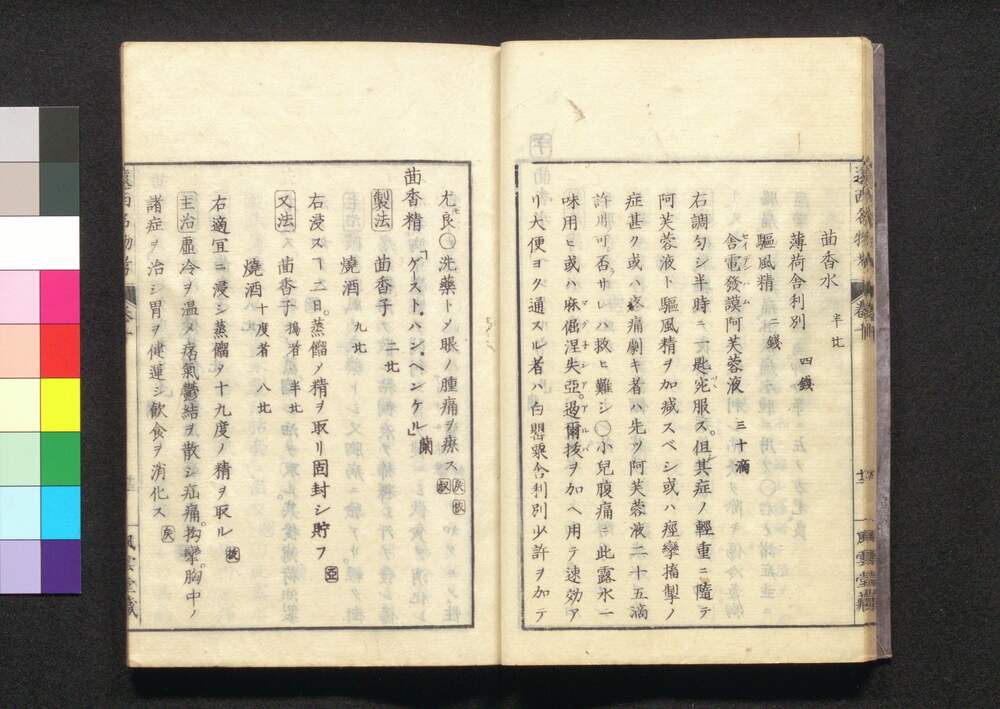 茴香水 半㪷
薄荷舎利別 四錢
驅風精 二錢
舎電發謨阿芙蓉液 三十滴
右調勻シ半時ニ一匙宛服ス。但其症ノ輕重ニ隨テ
阿芙蓉液ト驅風精ヲ加减スベシ或ハ痙攣搐掣ノ
症甚ク或ハ疼痛劇キ者ハ先ツ阿芙蓉液二十五滴
許用可否サレハ救ヒ難シ〇小兒腹痛ニ此露水一
味用ヒ或ハ麻倔涅失亞。過爾抜ヲ加ヘ用テ速効ア
リ大便ヨク通スル者ハ白罌粟舎利別少許ヲ加テ
尤良〇洗藥トメ眼ノ腫痛ヲ療ス
茴香精「ゲースト・ハン・ヘンケル」蘭
製法 茴香子 二
燒酒 九
右浸スヿ二日。蒸餾メ精ヲ取リ固封シ貯フ 亞
又法 茴香子 搗者 半
燒酒 十度者 八
右適宜ニ浸シ蒸餾メ十九度ノ精ヲ取ル
主治 虚冷ヲ温メ痞氣鬱結ヲ散シ疝痛。拘攣。胸中ノ
諸症ヲ治シ胃ヲ健運シ飲食ヲ消化ス
遠西名物考
風雲堂藏